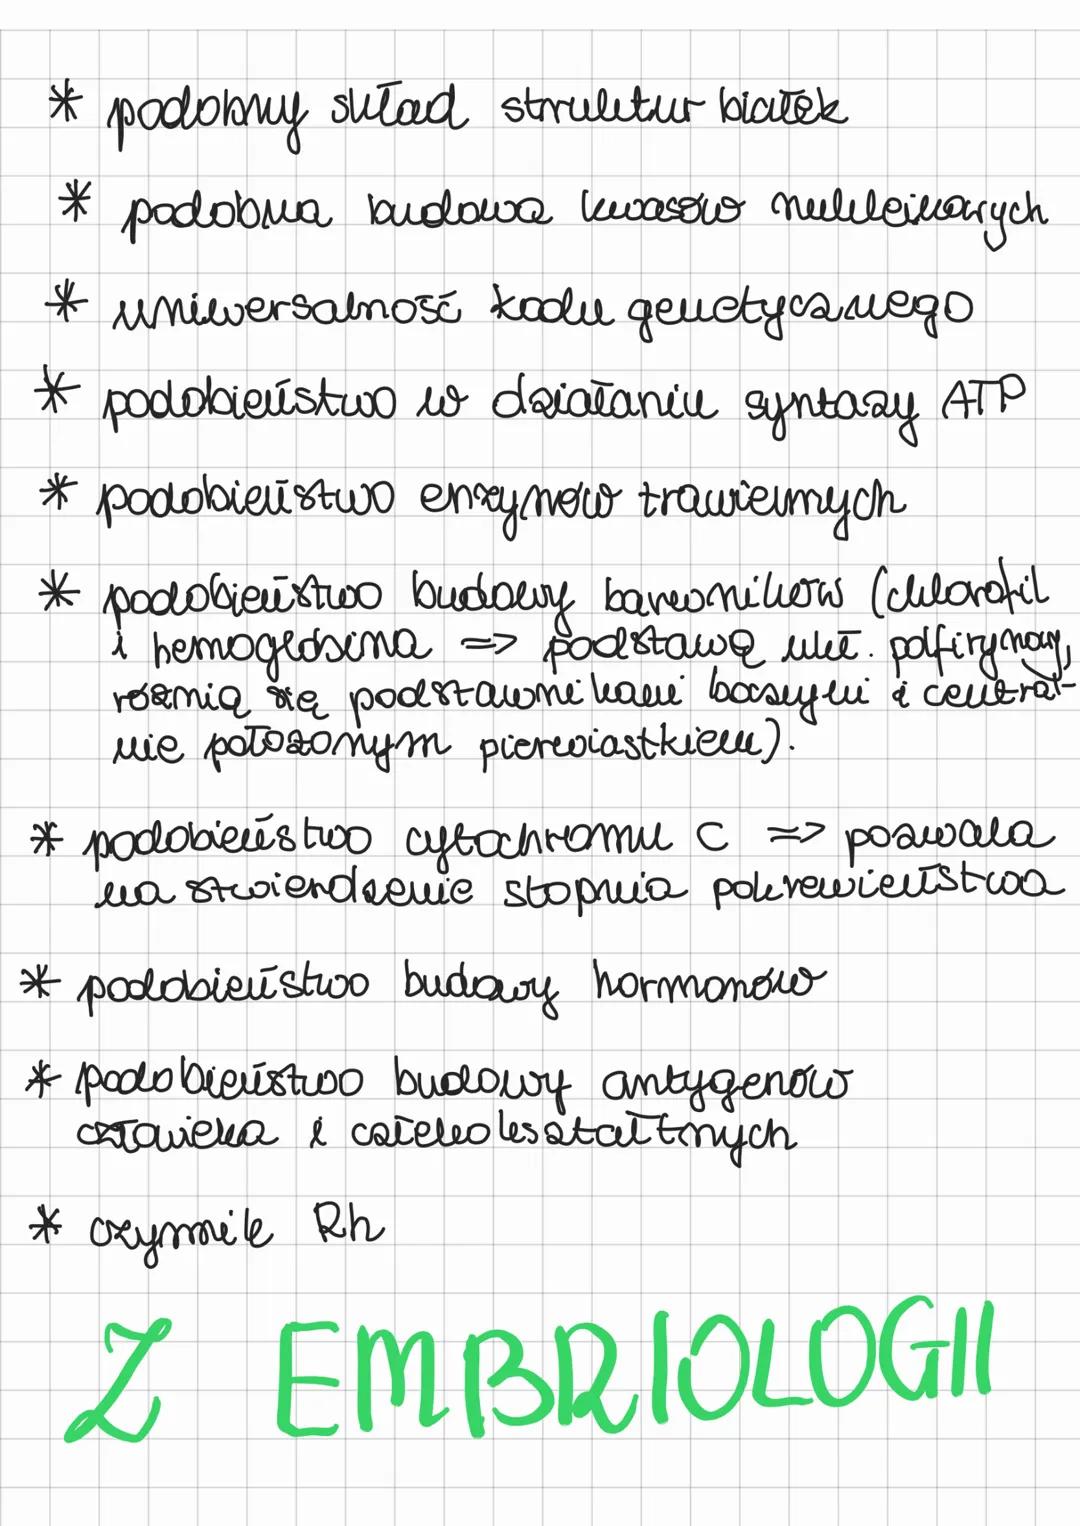 * podobny skład struktur białek
* podobna budowa kwasów nukleinowych
* uniwersalność kodu genetycznego
* podobieństwo w działaniu syntazy ATP
* podobieństwo enzymów trawiennych
* podobieństwo budowy barwników (chlorofil
i hemoglobina => podstawą ukł. polfirynowy,
różnią się podstawnikami bocznymi i central-
nie położonym pierwiastkiem).
* podobieństwo cytochromu C => pozwala
na stwierdzenie stopnia pokrewieństwa
* podobieństwo budowy hormonów
* podobieństwo budowy antygenów
człowieka i człekokształtnych
* czynnik Rh
Z EMBRIOLOGII